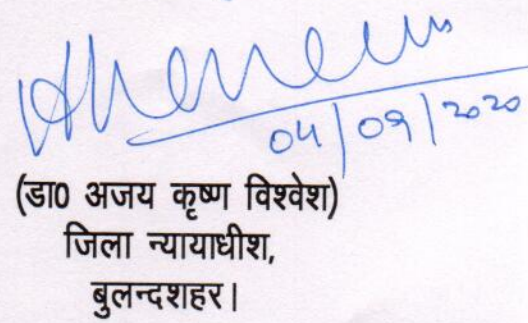 04/09/2020
(डा0 अजय कृष्ण विश्वेश)
जिला न्यायाधीश,
बुलन्दशहर।